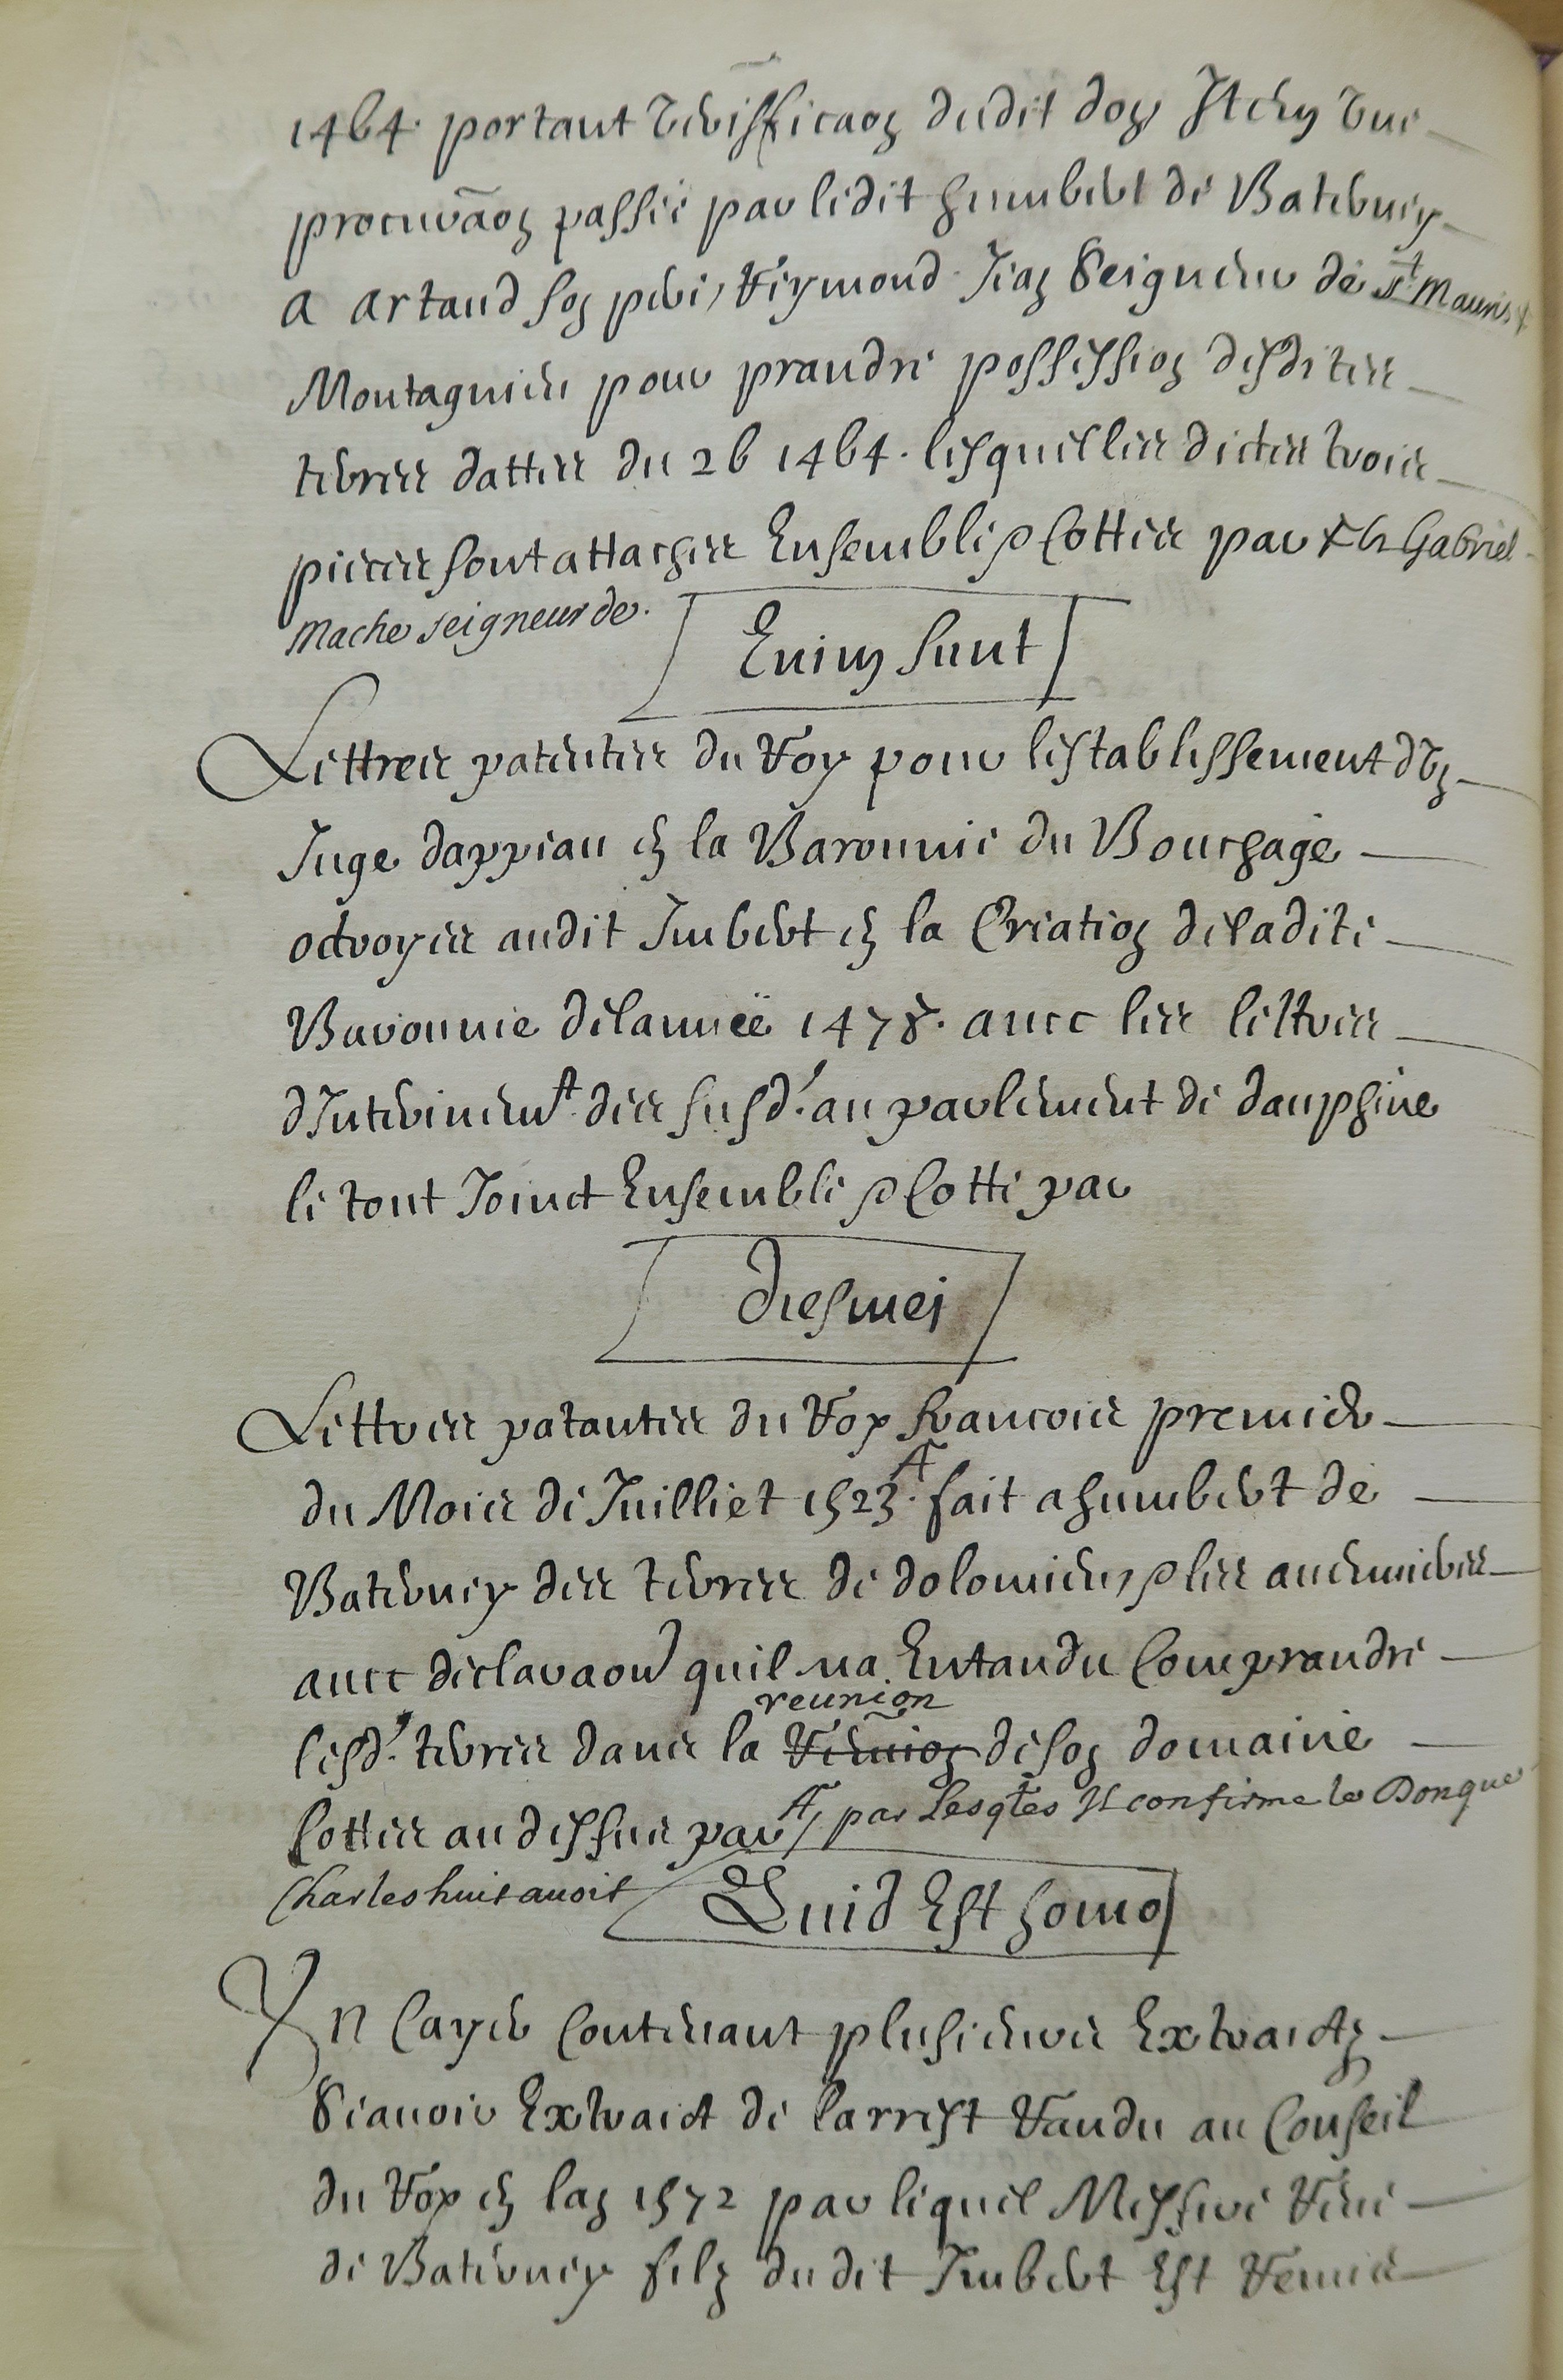 1464. portant veriffica͠on dudit don Item une
procura͠on passée par ledit humbert de Baterney
a artand son pere, Reymond Jean Seigneur de st Mauris &
Montagnieu pour prandre possession desdites
terres dattée du 26 1464. lesquelles dictes trois
pieces sont attachées Ensemble & Cottées par Gabriel
Mache seigneur de.
Enim sunt
Lettres patentes du Roy pour lestablissement d'un
Juge dappeau en la Baronnie du Bouchage
octroyés audit Imbert en la Creation de ladite
Baronnie de lannéë 1478. avec les lettres
dInterinemt. des susd. au parlement de dauphine
le tout Joinct Ensemble & Cotté par
dies mei
Lettres patantes du Roy francois premier
du Mois de Juilliet 1523. A fait a humbert de
Baterney des terres de dolomieu, & les auenieres
avec declaraon quil na Entandu Comprandre
reunion
lesd. terres dans la de son domaine
Cottées au dessus par A, par Lesqtes Il confirme le Don que
Charles huit avoit
Quid Est homo
Vn Cayer Contenant plusieurs Extraictz
Scavoir Extraict de larrest Randu au Conseil
du Roy en lan 1572 par lequel Messire René
de Baterney filz du dit Imbert Est Remis